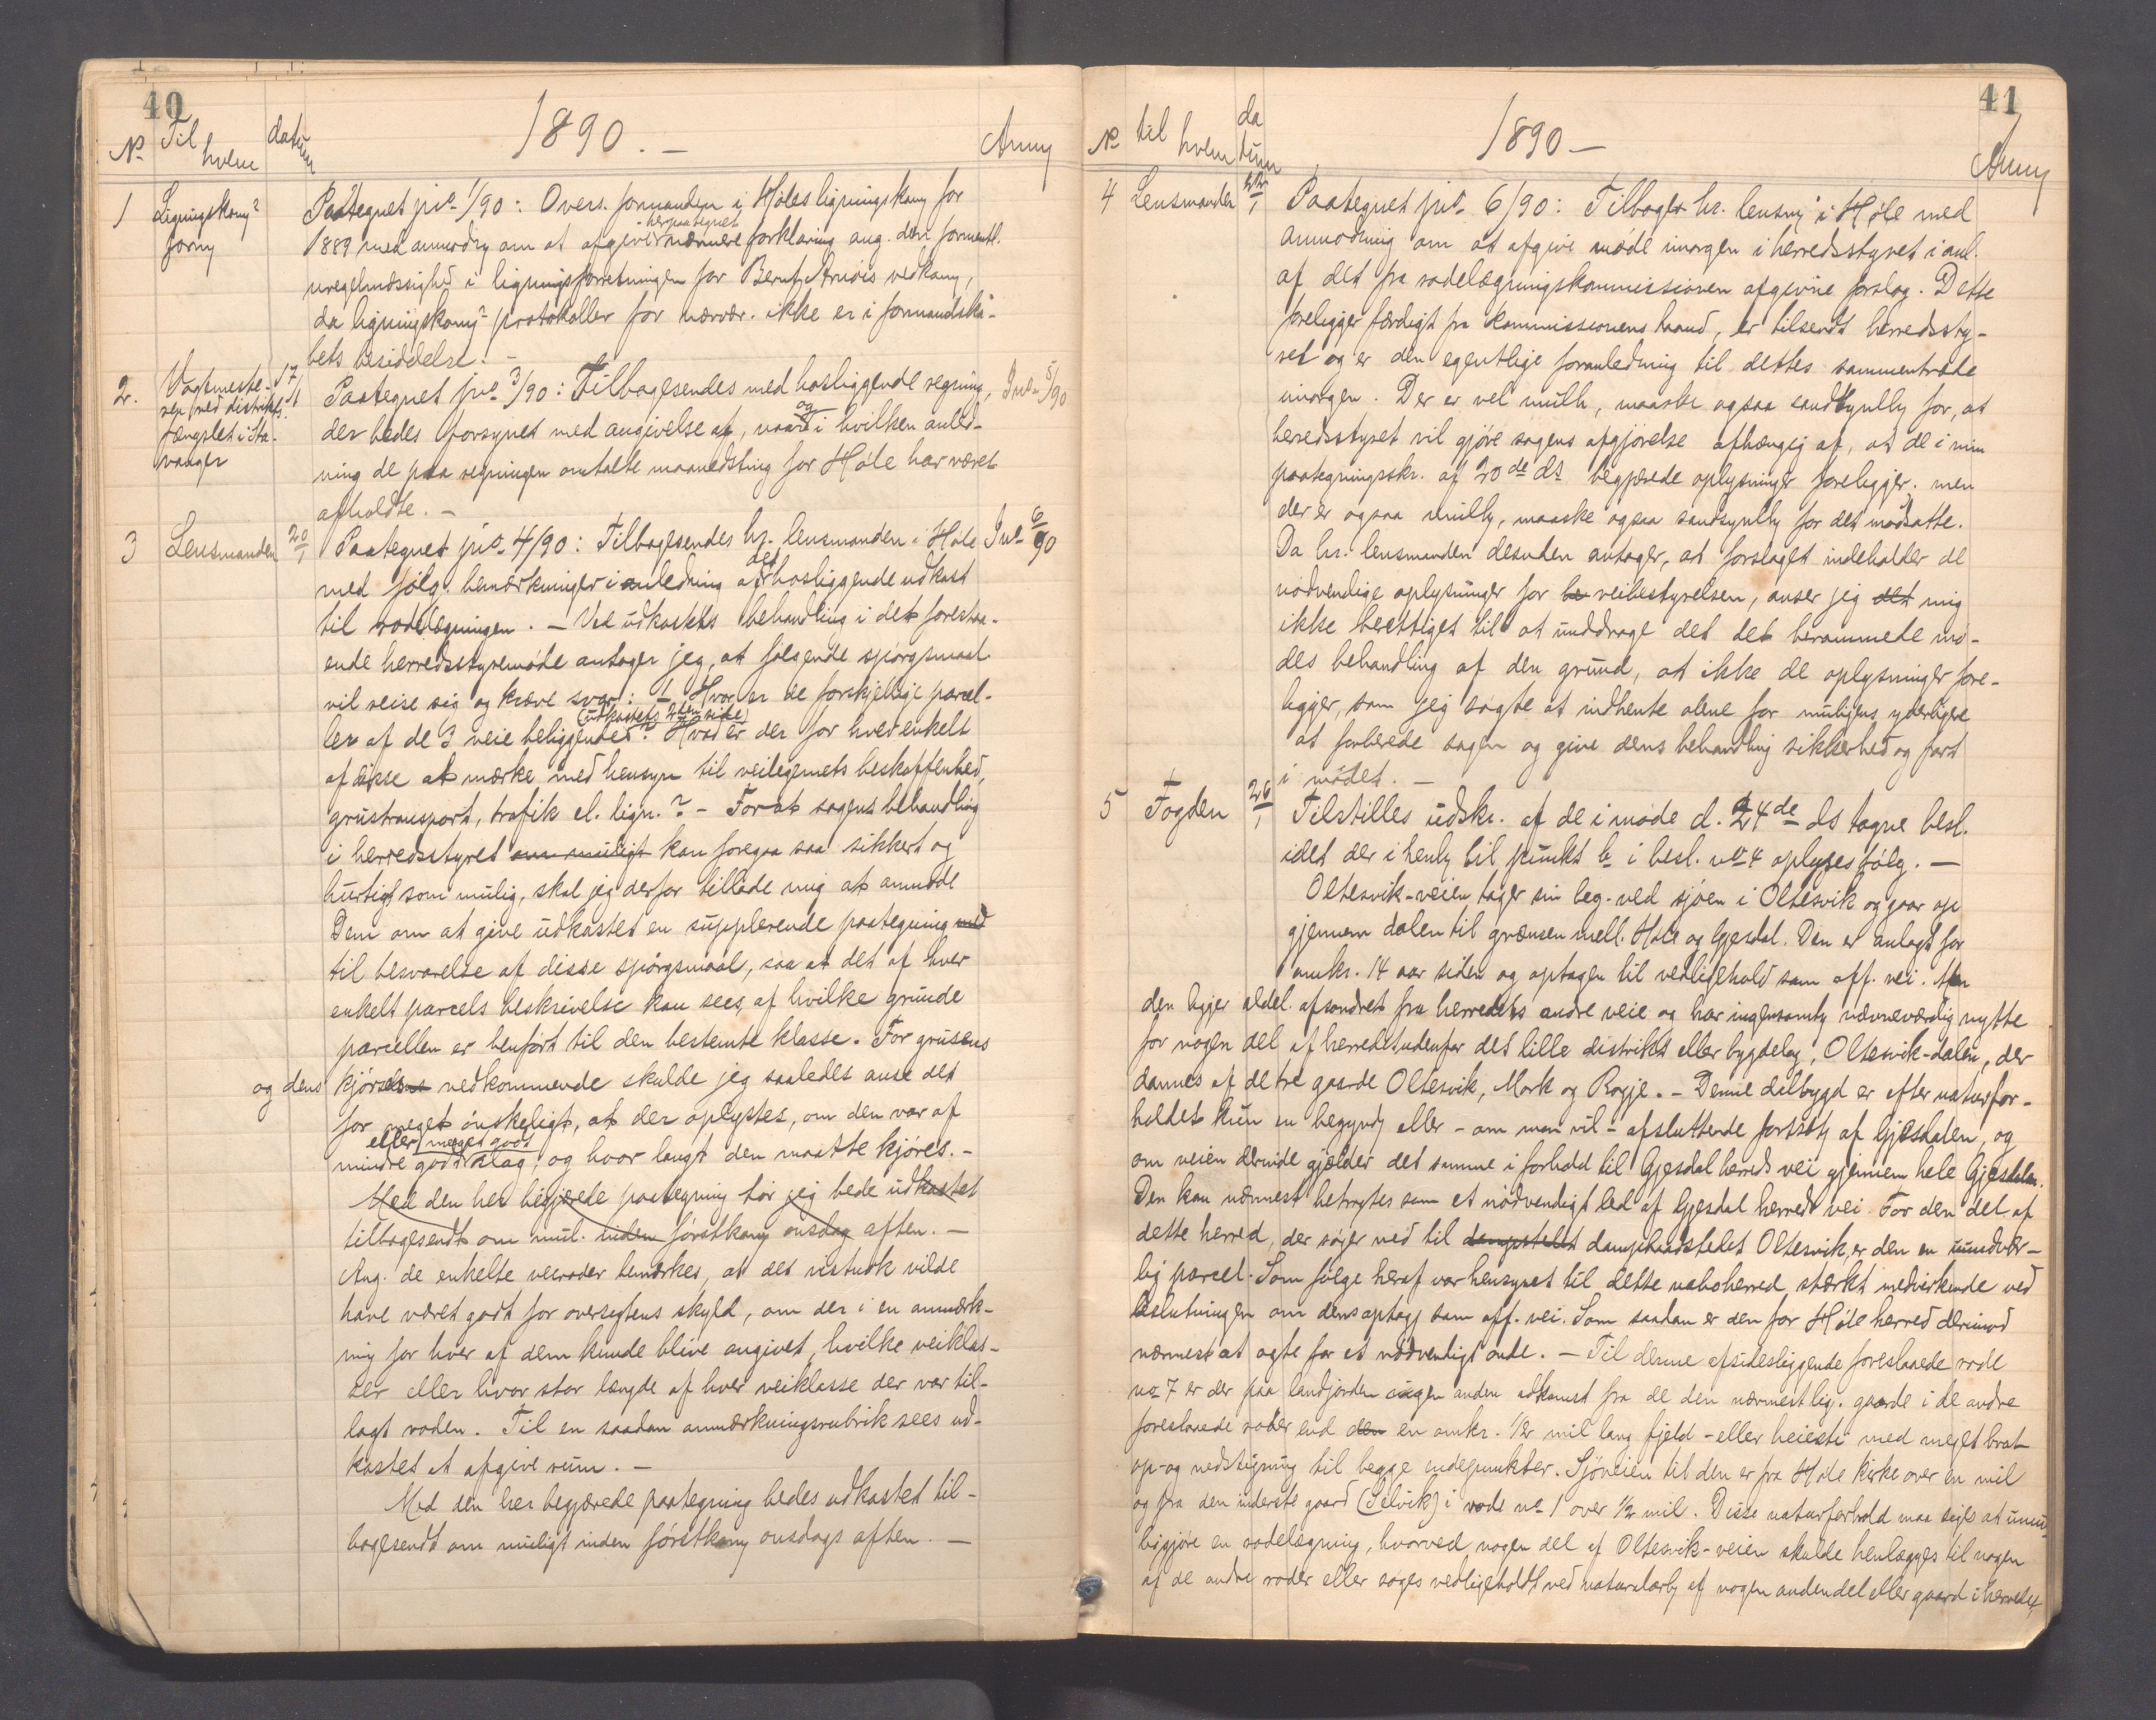 40
No Til hvem datum 1890. — Anm
1 Ligningskom? form
Paategnet jno 1/90: Overs. formanden i Høles ligningskom for
1889 med anmodng om at afgive hernærmere forklaring ang. den formentl.
herpaategnet
uregelmæssighed i ligningsforretningen for Bernt vedkom,
da ligningskom? protokoller for nærvær. ikke er i formandska-
bets besiddelse. —
2. Vagtmeste- 17/1
ren ved distrikts-
fængslet i Sta-
vanger
Paategnet jno 3/90: Tilbagesendes med hosliggende regning, Jno 5/90
der bedes forsynet med angivelse af, naar og i hvilken anled-
ning de paa regningen omtalte maanedsting for Høle har været
afholdte. —
3 Lensmanden 20/1
Paategnet jno 4/90: Tilbagesendes hr. lensmanden i Høle Jno 6/90
med følg. bemærkninger i anledning af det hosliggende udkast
til rodelægningen. — Ved udkastets behandling i det forestaa-
ende herredsstyremøde antager jeg, at følgende spørgsmaal
vil reise sig og kræve svar: 1 Hvor er de forskjellige parcel-
ler af de 3 veie beliggende? Hvad er der for hver enkelt
(udkastets 2den side)
af disse at mærke med hensyn til veilegemets beskaffenhed,
grustransport, trafik el. lign.? — Forat sagens behandling
i herredsstyret om muligt kan foregaa saa sikkert og
hurtigt som mulig, skal jeg derfor tillade mig at anmode
Dem om at give udkastet en supplerende paategning med
til besvarelse af disse spørgsmaal, saa at det af hver
enkelt parcels beskrivelse kan sees, af hvilke grunde
parcellen er henført til den bestemte klasse. For grusens
og dens kjørsel vedkommende skulde jeg saaledes anse det
for meget ønskeligt, at der oplystes, om den var af
eller meget godt
mindre godt slag, og hvor langt den maatte kjøres. —
Med den her begjærede paategning tør jeg bede udkastet
tilbagesendt om mul. inden førstkom onsdag aften. —
Ang. de enkelte veiroder bemærkes, at det vistnok vilde
have været godt for oversigtens skyld, om der i en anmærk-
ning for hver af dem kunde blive angivet, hvilke veiklas-
ser eller hvor stor længde af hver veiklasse der var til-
lagt roden. Til en saadan anmærkningsrubrik sees ud-
kastet at afgive rum. —
Med den her begjærede paategning bedes udkastet til-
bagesendt om muligt inden førstkom onsdags aften. —
41
No til hvem datum 1890 — Anm
4 Lensmanden 22/1
Paategnet jno 6/90: Tilbage hr. lensm i Høle med
anmodning om at afgive møde imorgen i herredsstyret i anl.
af det fra rodelægningskommissionen afgivne forslag. Dette
foreligger færdigt fra kommissionens haand, er tilsendt herredssty-
ret og er den egentlige foranledning til dettes sammentræde
imorgen. Der er vel mulh, maaske ogsaa sandsynlh for, at
herredsstyret vil gjøre sagens afgjørelse afhængig af, at de i min
paategningsskr. af 20de ds begjærede oplysninger foreligger, men
der er ogsaa mulh, maaske ogsaa sandsynlh for det modsatte.
Da hr. lensmanden desuden antager, at forslaget indeholder de
nødvendige oplysninger for be veibestyrelsen, anser jeg det mig
ikke berettiget til at unddrage det det berammede mø-
des behandling af den grund, at ikke de oplysninger fore-
ligger, som jeg søgte at indhente alene for muligens yderligere
at forberede sagen og give dens behandling sikkerhed og fart
i mødet. —
5 Fogden 26/1
Tilstilles udskr. af de i møde d. 24de ds tagne besl.
idet der i henh til punkt b i besl. no 4 oplyses følg. —
Oltesvik-veien tager sin beg. ved sjøen i Oltesvik og gaar op
gjennem dalen til grænsen mell. Høle og Gjesdal. Den er anlagt for
omkr. 14 aar siden og optagen til vedligehold som off. vei. Men
den ligger aldel. afsondret fra herredets andre veie og har ingensomh nævneværdig nytte
for nogen del af herredet udenfor det lille distrikt eller bygdelag, Oltesvik-dalen, der
dannes af de tre gaarde Oltesvik, Mork og Rogje. — Denne dalbygd er efter naturfor-
holdet kun en begyndelse eller — om man vil — afsluttende fortsæt af Gjesdalen, og
om veien dernede gjælder det samme i forhold til Gjesdal herreds vei gjennem hele Gjesdalen.
Den kan nærmest betragtes som et nødvendigt led af Gjesdal herreds vei. For den del af
dette herred, der søger ned til dampstellet dampskibsstedet Oltesvik, er den en uundvær-
lig parcel. Som følge heraf var hensynet til dette naboherred stærkt medvirkende ved
beslutningen om dens optag som off. vei. Som saadan er den for Høle herred derimod
nærmest at agte for et nødvendigt onde. — Til denne afsidesliggende foreslaaede rode
no 7 er der paa landjorden ingen anden adkomst fra de den nærmest lig. gaarde i de andre
foreslaaede roder end den en omkr. 1/2 mil lang fjeld- eller heiesti med meget brat
op- og nedstigning til begge endepunkter. Sjøveien til den er fra Høle kirke over en mil
og fra den inderste gaard (Selvik) i rode no 1 over 1/2 mil. Disse naturforhold maa siges at umu-
liggjøre en rodelægning, hvorved nogen del af Oltesvik-veien skulde henlægges til nogen
af de andre roder eller søges vedligeholdt ved naturalarb af nogen anden del eller gaard i herredet,